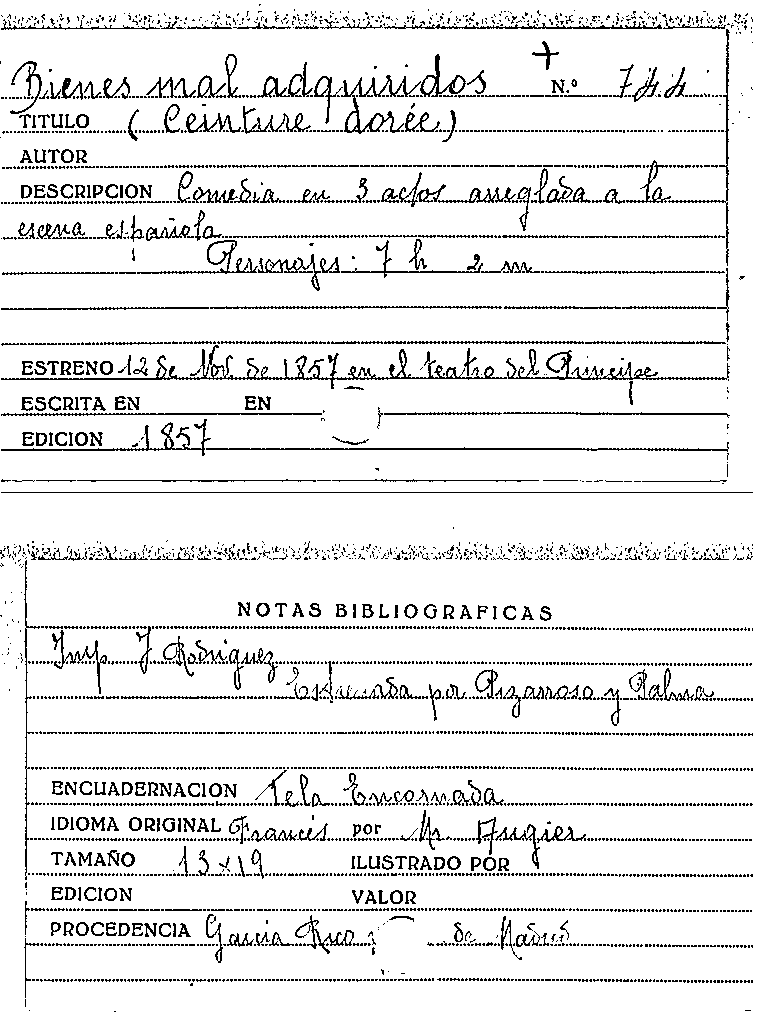 Bienes mal adquiridos + N.º 744
TITULO (Ceinture dorée)
AUTOR
DESCRIPCION Comedia en 3 actos arreglada a la
escena española
Personajes: 7 h 2 m
ESTRENO 12 de Nov. de 1857 en el teatro del Principe
ESCRITA EN EN
EDICION 1857
NOTAS BIBLIOGRAFICAS
Imp J Rodriguez
Estrenada por Pizarroso y Palma
ENCUADERNACION Tela Encarnada
IDIOMA ORIGINAL Francés por Mr. Augier
TAMAÑO 13x19 ILUSTRADO POR
EDICION VALOR
PROCEDENCIA García Rico de Madrid